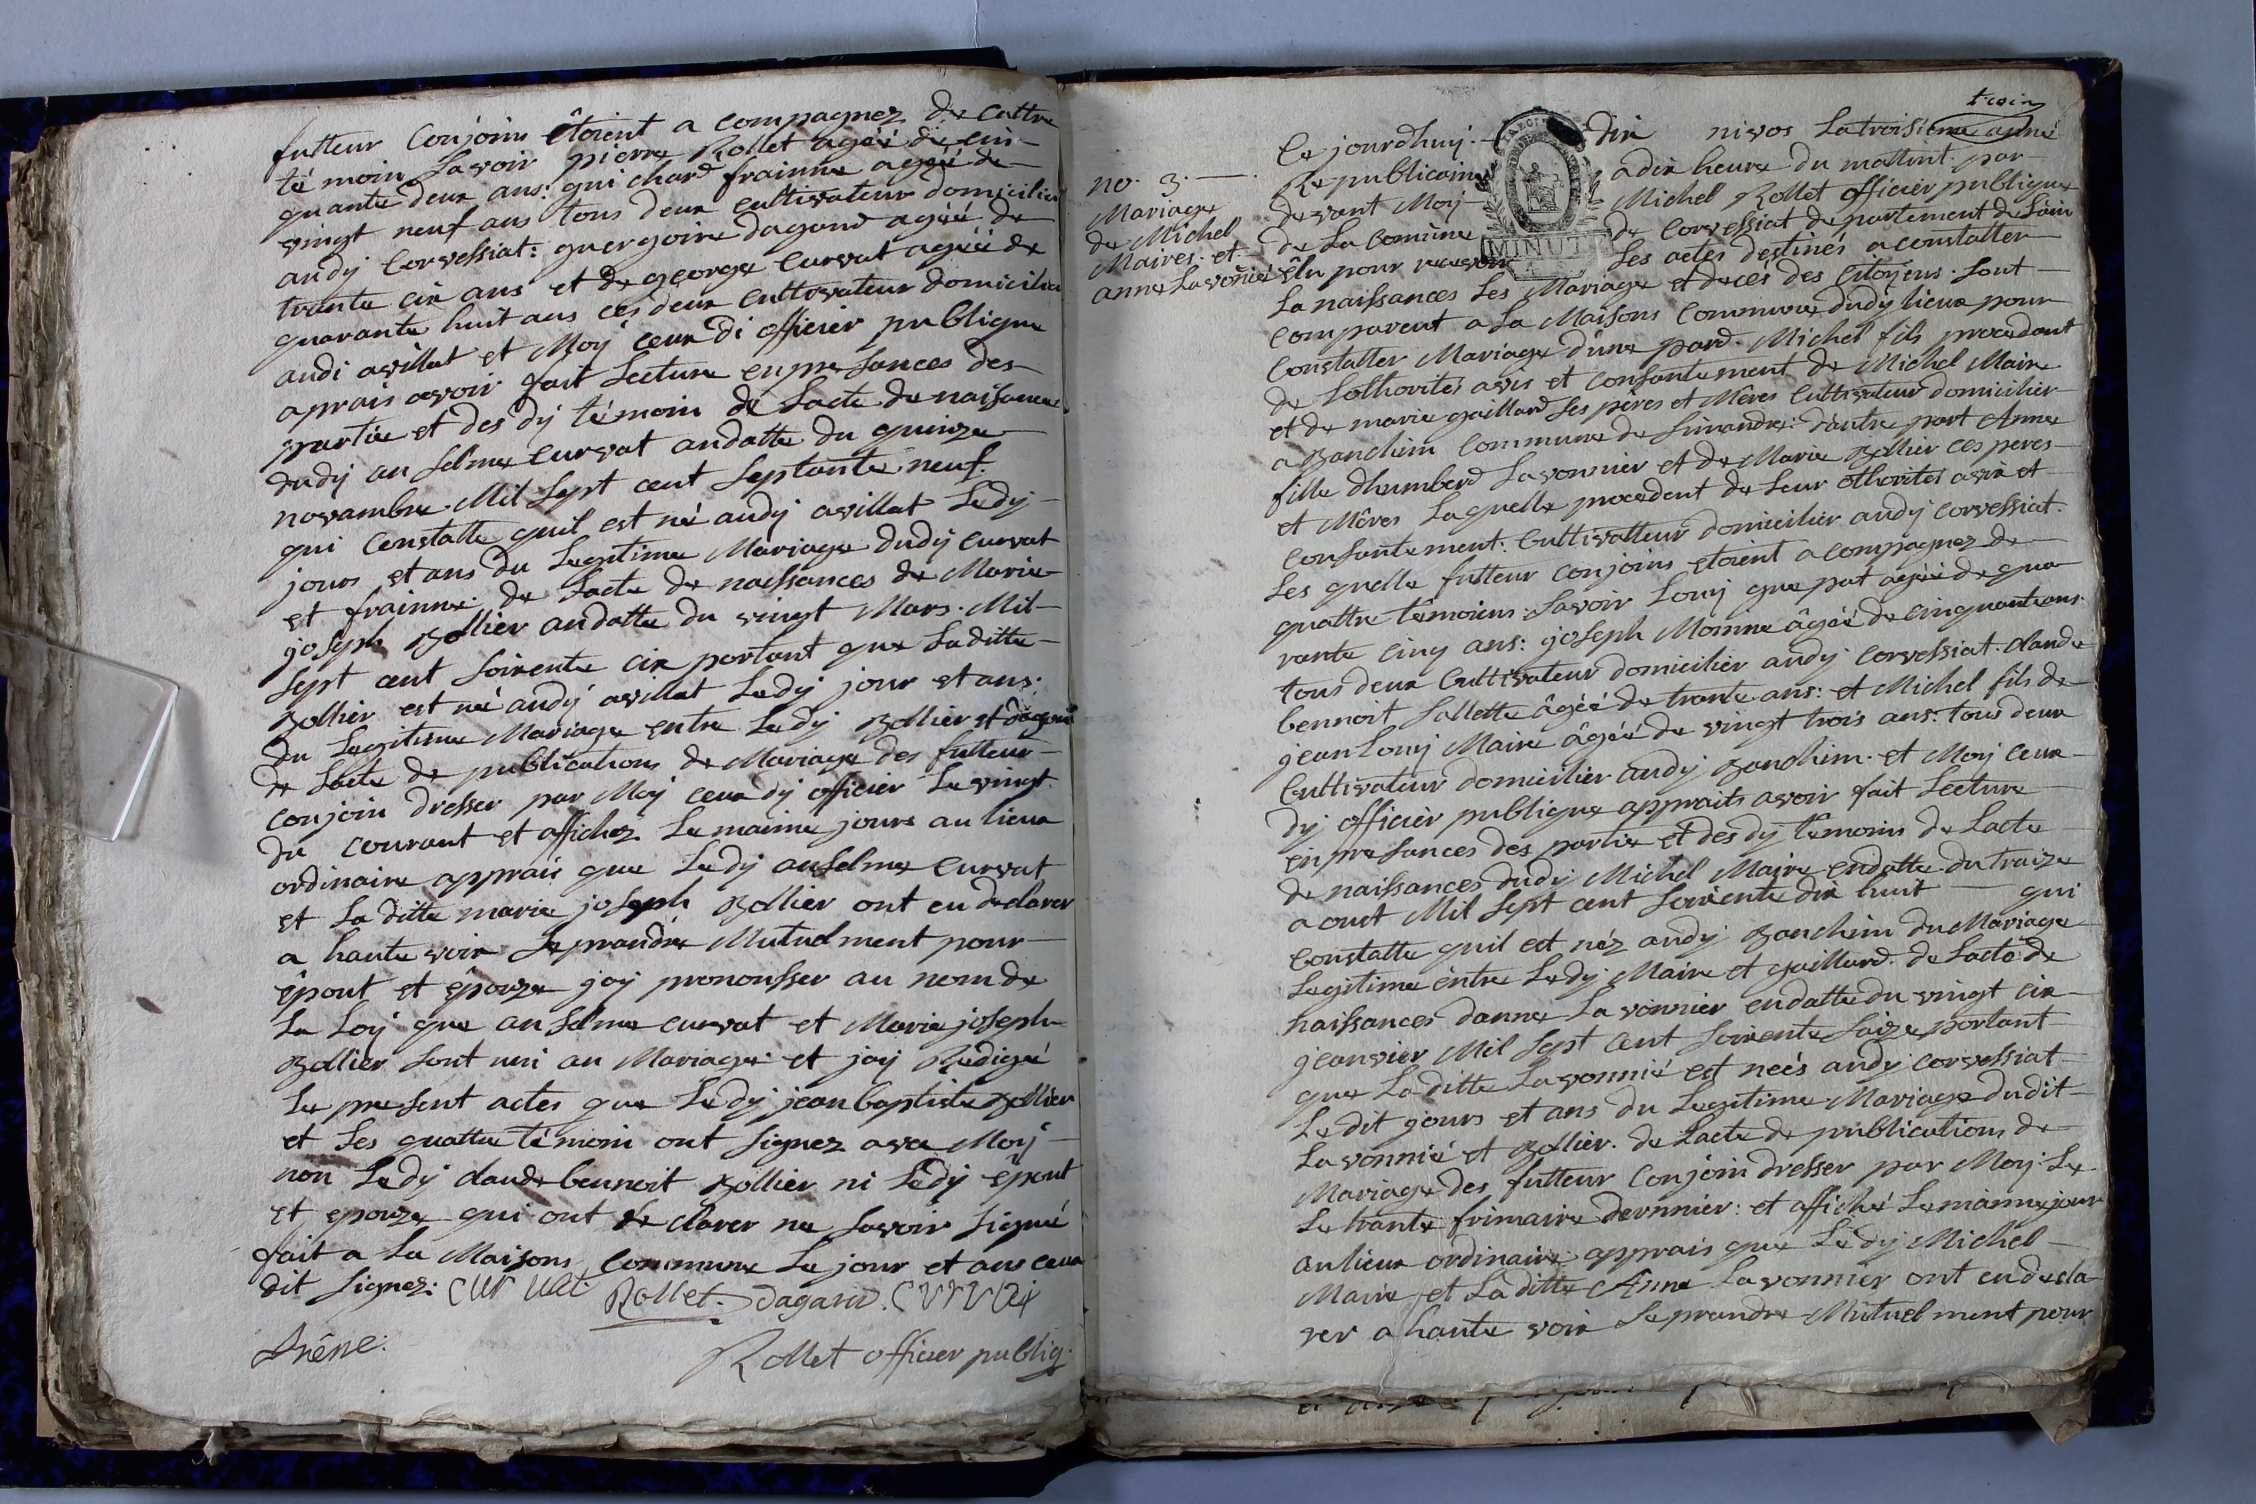 futteur Conjoins êtoient a compagnez de cattre
témoin Savoir pierre Rollet agéé de cin-
quante deux ans: guichard frainne agéé de
vingt neuf ans tous deux cultivateur domicilier
audy Corvessiat: guergoire dagand agéé de
trante cix ans et de george Curvat agéé de
quarante huit ans ces deux cultivateur domicilier
audi avillat et Moy ceux di officier publique
aprais avoir fait Lecture en pre sances des
partie et des dy témoin de Lacte de naissances
dudy an selme Curvat andatte du quinze
novambre Mil Sept cent Septante neuf.
qui Constatte quil est né audy avillat Ledy
jours et ans du Legitime Mariage dudy Curvat
et frainne: de Lacte de naissances de Marie
joseph Bollier andatte du vingt Mars. Mil
Sept cent Soixente cix portant que Laditte
Bollier est né audy avillat Ledy jour et ans:
du Legitime Mariage entre Ledy Bollier et dagand
de Lacte de publications de Mariage des futteur
conjoin dresser par Moy ceux dy officier Le vingt
du courant et affichez Le maime jours au lieux
ordinaire apprais que Ledy anselme Curvat
et La ditte marie joseph Bollier ont eu declarer
a haute voix Se prandre Mutuelment pour
êpout et êpouze jay prononsser au nom de
La Loy que anselme curvat et Marie joseph
Bollier sont uni au Mariage: et jay Redigéé
Le present actes que Ledy jean baptiste Bollier
et Les quattre témoin ont signez avec Moy
non Ledy claude bennoit Bollier ni Ledy epout
et epouze qui ont de clarer ne Savoir Signé
fait a La Maisons Commune Le jour et ans ceux
dit Signez: cur vat Rollet. dagand. Curvat
frêne:
Rollet officier publiq.
troix
no. 3.
Mariage
de Michel
Maires. et
anne Lavonié
Ce jourdhuy dix nivos La troisieme anné
Republicaine a dix heure du mattint par
devant Moy Michel Rollet officier publique
de La Comune de Corvessiat departement de Lain
MINUT
êlu pour recevoir Les actes destinés a constatter
La naissances Les Mariage et decés des Citoyens. Sont
comparent a La Maisons Commune dudy lieux pour
Constatter Mariage dune pard. Michel fils procedant
de Lothorités avis et Consantement de Michel Maire
et de marie gaillard Ses pères et Mêres Cultivateur domicilier
a Banchin Commune de Simandre: dautre part Anne
fille dhumberd Lavonnier et de Marie Bollier ces peres
et Mêres Laquelle procedent de Leur othorités avix et
consantement: Cultivatteur domicilier audy corvessiat.
Les quelle futteur conjoins etoient a compagnez de
quattre têmoins: Savoir Louy que pat agéé de qua
rante cinq ans: joseph Monne âgéé de cinquante ans
tous deux Cultivateur domicilier audy corvessiat. claude
bennoit Sallette âgéé de trante ans: et Michel fils de
jean Louy Maire âgéé de vingt trois ans: tous deux
Cultivateur domicilier audy Banchin. et Moy ceux
dy officier publique appraits avoir fait Lecture
en presances des partie et des dy têmoins de Lacte
de naissances dudy Michel Maire endatte du traize
aoust Mil Sept cent Soixente dix huit qui
constatte quil est néz audy Banchin du Mariage
Legitime entre Ledy Maire et gaillard. de Lacte de
naissances danne Lavonnier endatte du vingt cix
jeanvier Mil Sept cent Soixente Saize portant
que La ditte Lavonnié est neés audy corvessiat
Le dit jours et ans du Legitime Mariage dudit
Lavonnié et Bollier. de Lacte de publications de
Mariage des futteur Conjoin dresser par Moy Le
Le trante frimaire dernnier: et affiché Le maime jour
au lieux ordinaire apprais que Ledy Michel
Maire et La ditte Anne Lavonnier ont eu decla
rer a haute voix Se prandre Mutuelment pour